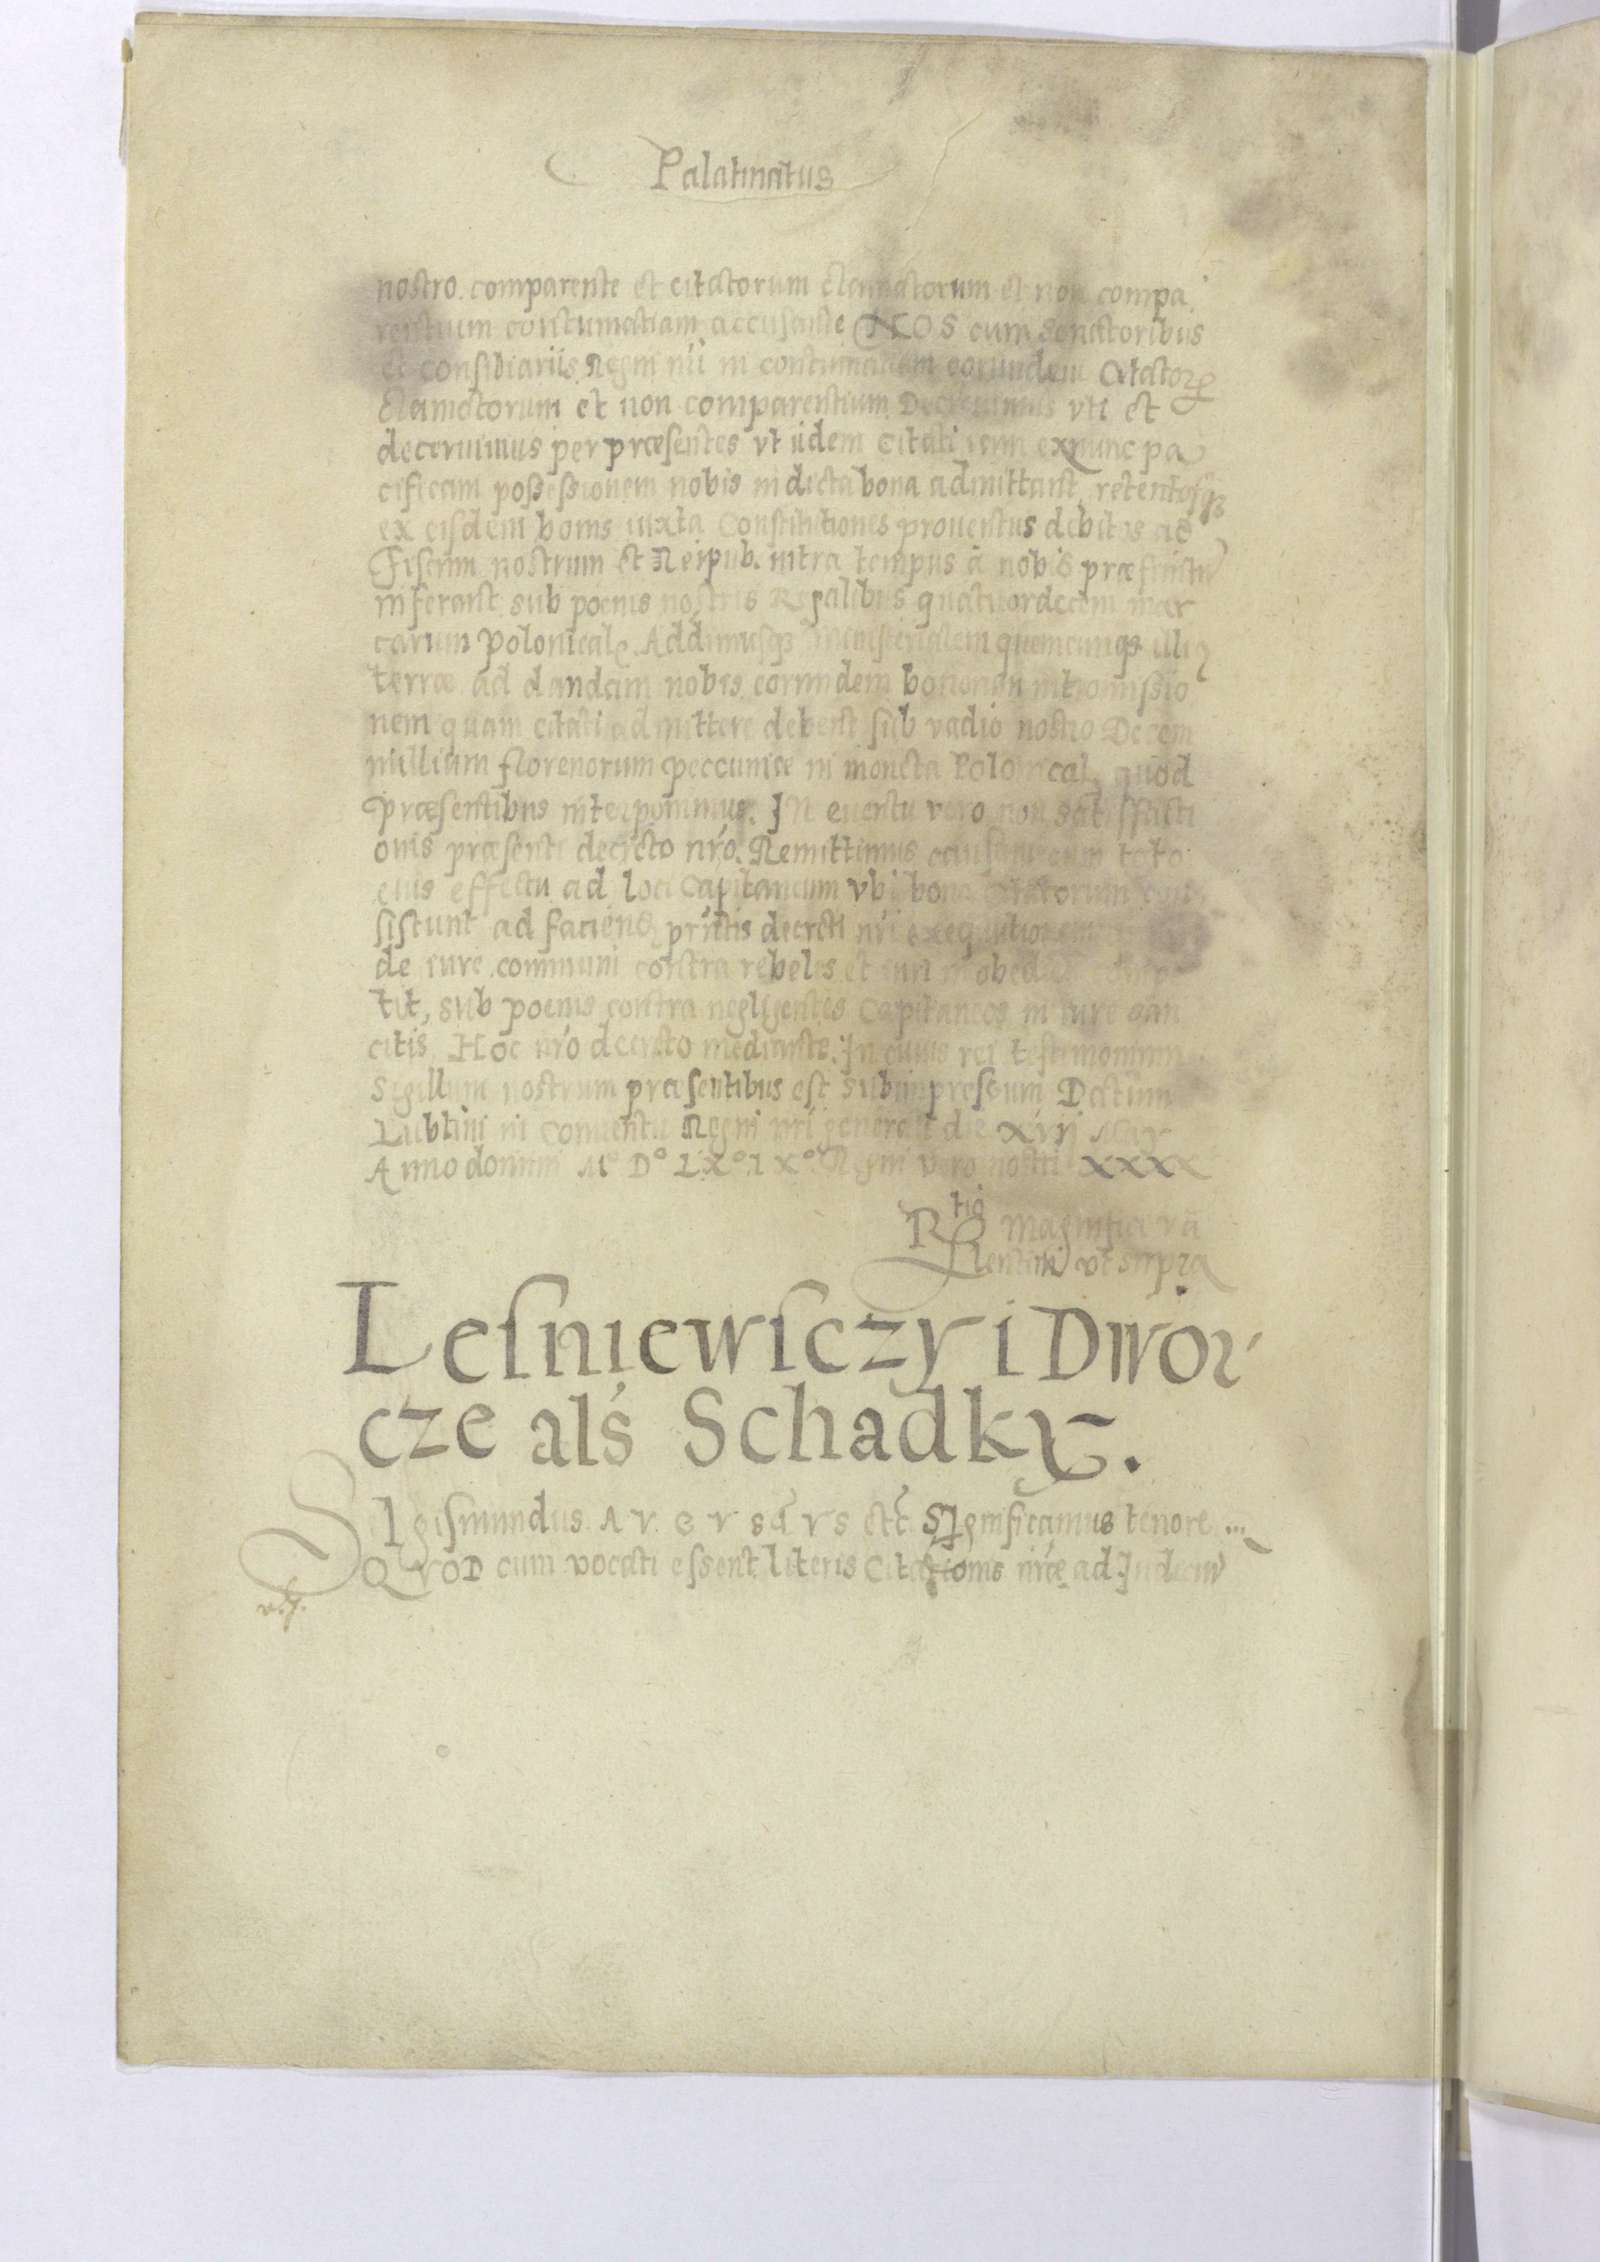 Palatinatus
nostro comparente et citatorum clamatorum et non compa
rentium contumatiam accusante NOS cum senatoribus
et consiliariis Regni nri in contumatiam eorundem Citatorꝝ
clamatorum et non comparentium Decreuimus vti et
decernimus per præsentes vt iidem Citati iam exnunc pa
cificam possessionem nobis in dicta bona admittant retentosqꝫ
ex eisdem bonis iuxta Constitutiones prouentus debitos ad
Fiscum nostrum et Reipub. intra tempus à nobis præfinitū
inferant sub poenis nostris Regalibus quatuordecem mar
carum polonical. Addimusqꝫ ministerialem quemcunqꝫ illiꝰ
terræ ad dandam nobis eorundem bonorum intromissio
nem quam citati admittere debent sub vadio nostro Decem
millium florenorum peccuniæ in moneta Polonical, quod
præsentibus interponimus. IN euentu vero non satisffacti
onis præsenti decreto nro. Remittimus causam cum toto
eius effectu ad loci Capitaneum vbi bona citatorum con
sistunt ad faciend prntis decreti nri exequutionem
de iure communi contra rebeles et iuri inobed
tit, sub poenis contra negligentes Capitaneos in iure san
citis Hoc nro decreto mediante. In cuius rei testimonium
Sigillum nostrum præsentibus est subimpressum Datum
Lublini in Conuentu Regni nri generali die XVII May
Anno domini M° D° LX° IX° Regni vero nostri XXXX
Rtio Magnifici Va
lentini vt supra
Lesniewiczy i Dwor
cze als Schadky.
SIgismundus AVGVSTVS etc. SIgnificamus tenore ...
QVOD cum vocati essent literis Citationis nræ ad Iudiciū